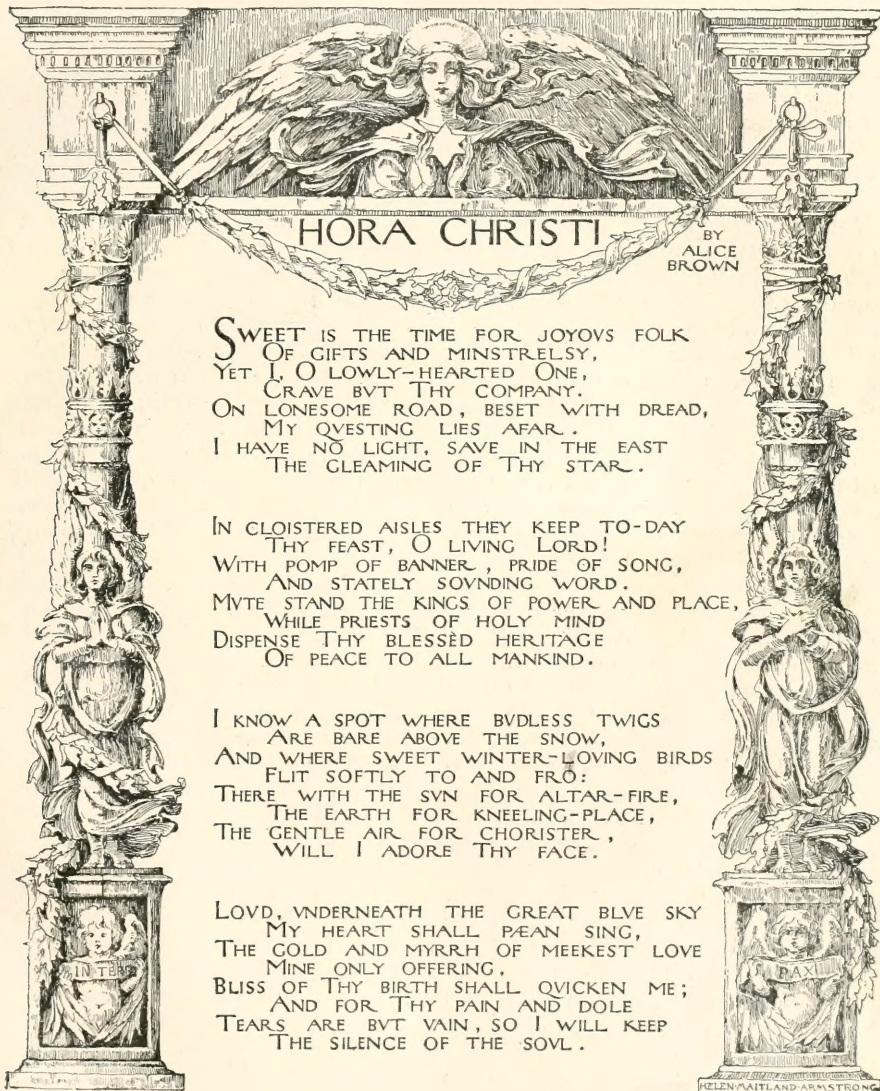 HORA CHRISTI
BY
ALICE
BROWN
SWEET IS THE TIME FOR JOYOVS FOLK
OF GIFTS AND MINSTRELSY,
YET I, O LOWLY-HEARTED ONE,
CRAVE BVT THY COMPANY.
ON LONESOME ROAD, BESET WITH DREAD,
MY QVESTING LIES AFAR.
I HAVE NO LIGHT, SAVE IN THE EAST
THE GLEAMING OF THY STAR.
IN CLOISTERED AISLES THEY KEEP TO-DAY
THY FEAST, O LIVING LORD!
WITH POMP OF BANNER, PRIDE OF SONG,
AND STATELY SOVNDING WORD.
MVTE STAND THE KINGS OF POWER AND PLACE,
WHILE PRIESTS OF HOLY MIND
DISPENSE THY BLESSÈD HERITAGE
OF PEACE TO ALL MANKIND.
I KNOW A SPOT WHERE BVDLESS TWIGS
ARE BARE ABOVE THE SNOW,
AND WHERE SWEET WINTER-LOVING BIRDS
FLIT SOFTLY TO AND FRO:
THERE WITH THE SVN FOR ALTAR-FIRE,
THE EARTH FOR KNEELING-PLACE,
THE GENTLE AIR FOR CHORISTER,
WILL I ADORE THY FACE.
LOVD, VNDERNEATH THE GREAT BLVE SKY
MY HEART SHALL PÆAN SING,
THE GOLD AND MYRRH OF MEEKEST LOVE
MINE ONLY OFFERING.
BLISS OF THY BIRTH SHALL QVICKEN ME;
AND FOR THY PAIN AND DOLE
TEARS ARE BVT VAIN, SO I WILL KEEP
THE SILENCE OF THE SOVL.
IN TERR
PAX
HELEN·MAITLAND·ARMSTRONG